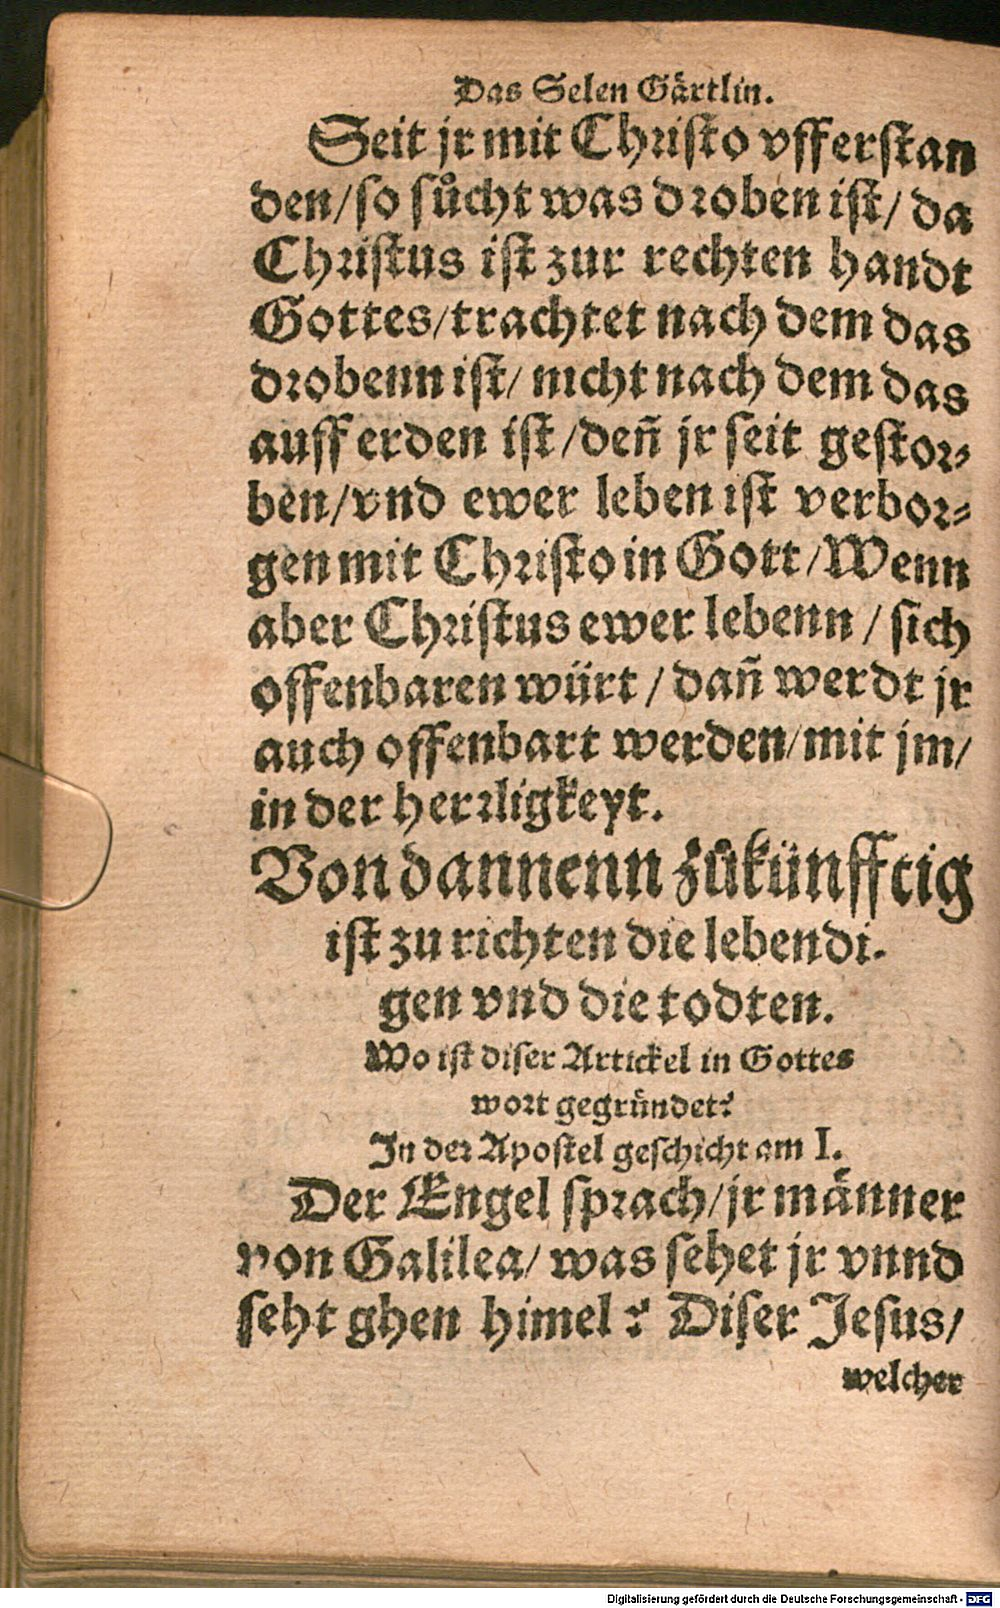 Das Selen Gärtlin.
Seit jr mit Christo vfferstan
den/so sůcht was droben ist/ da
Christus ist zur rechten handt
Gottes/trachtet nach dem das
drobenn ist/ nicht nach dem das
auff erden ist/deñ jr seit gestor⸗
ben/vnd ewer leben ist verbor⸗
gen mit Christo in Gott/Wenn
aber Christus ewer lebenn / sich
offenbaren würt / dañ werdt jr
auch offenbart werden/mit jm/
in der herrligkeyt.
Von dannenn zůkünfftig
ist zu richten die lebendi.
gen vnd die todten.
Wo ist diser Artickel in Gottes
wort gegründet?
In der Apostel geschicht am I.
Der Engel sprach/jr männer
von Galilea/ was sehet jr vnnd
seht ghen himel? Diser Jesus/
welcher
Digitalisierung gefördert durch die Deutsche Forschungsgemeinschaft - DFG